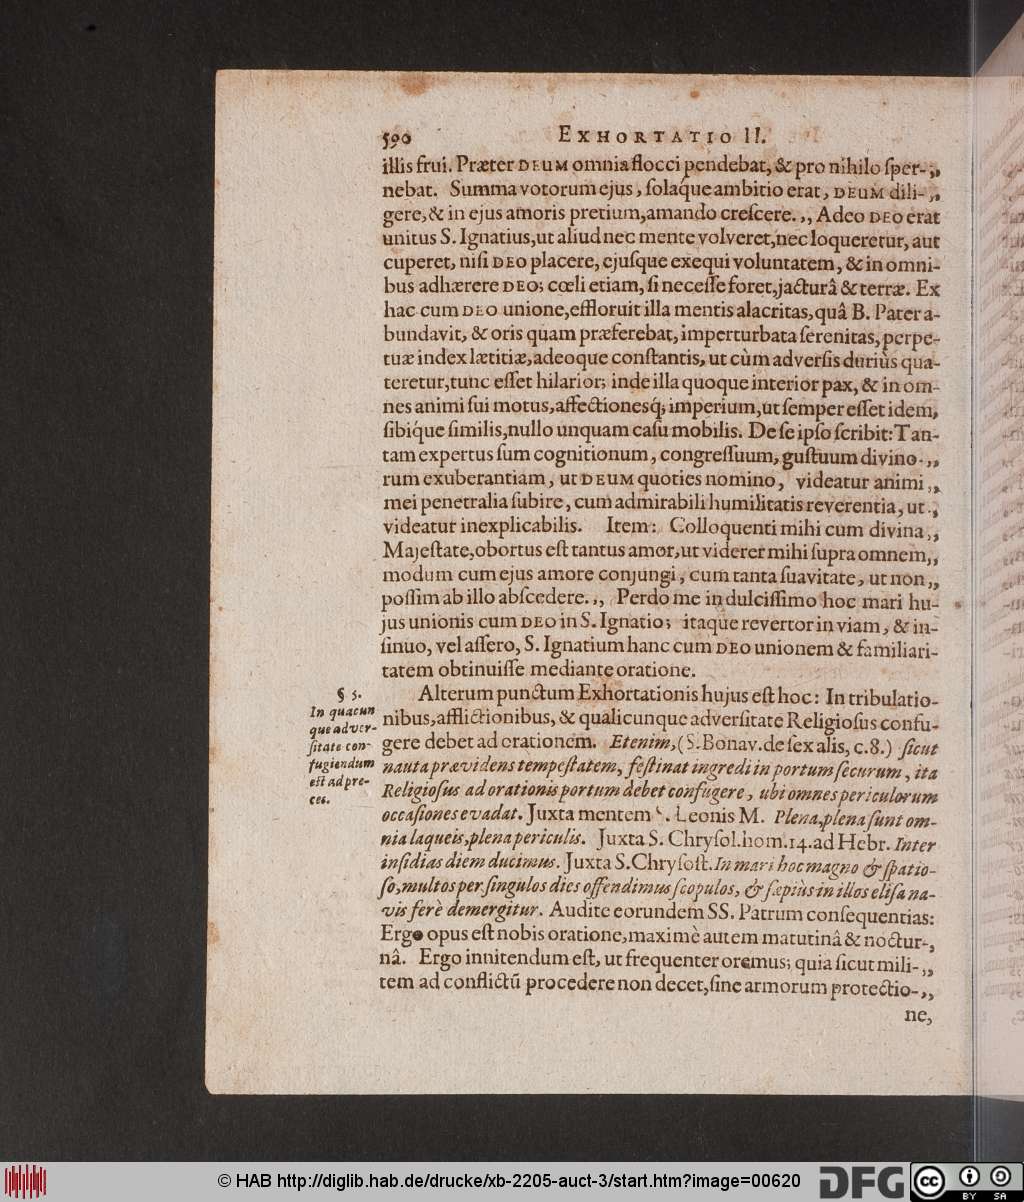 590 EXHORTATIO II.
illis frui. Præter DEUM omnia flocci pendebat, & pro nihilo ſper-,,
nebat. Summa votorum ejus, ſolaque ambitio erat, DEUM dili-,,
gere, & in ejus amoris pretium, amando creſcere.,, Adeo DEO erat
unitus S. Ignatius, ut aliud nec mente volveret, nec loqueretur, aut
cuperet, niſi DEO placere, ejuſque exequi voluntatem, & in omni-
bus adhærere DEO; cœli etiam, ſi neceſſe foret, jacturâ & terræ. Ex
hac cum DEO unione, effloruit illa mentis alacritas, quâ B. Pater a-
bundavit, & oris quam præferebat, imperturbata ſerenitas, perpe-
tuæ index lætitiæ, adeoque conſtantis, ut cùm adverſis duriùs qua-
teretur, tunc eſſet hilarior; inde illa quoque interior pax, & in om-
nes animi ſui motus, affectionesq́; imperium, ut ſemper eſſet idem,
ſibíque ſimilis, nullo unquam caſu mobilis. De ſe ipſo ſcribit: Tan-
tam expertus ſum cognitionum, congreſſuum, guſtuum divino-,,
rum exuberantiam, ut DEUM quoties nomino, videatur animi,,
mei penetralia ſubire, cum admirabili humilitatis reverentia, ut,,
videatur inexplicabilis. Item: Colloquenti mihi cum divina,,
Majeſtate, obortus eſt tantus amor, ut viderer mihi ſupra omnem,,
modum cum ejus amore conjungi, cum tanta ſuavitate, ut non,,
poſſim ab illo abſcedere.,, Perdo me in dulciſſimo hoc mari hu-
jus unionis cum DEO in S. Ignatio; itaque revertor in viam, & in-
ſinuo, vel aſſero, S. Ignatium hanc cum DEO unionem & familiari-
tatem obtinuiſſe mediante oratione.
§ 5.
In quacun
que adver-
ſitate con-
fugiendum
eſt ad pre-
ces.
Alterum punctum Exhortationis hujus eſt hoc: In tribulatio-
nibus, afflictionibus, & qualicunque adverſitate Religioſus confu-
gere debet ad orationem. Etenim, (S. Bonav. de ſex alis, c. 8.) ſicut
nauta prævidens tempeſtatem, feſtinat ingredi in portum ſecurum, ita
Religioſus ad orationis portum debet confugere, ubi omnes periculorum
occaſiones evadat. Juxta mentem S. Leonis M. Plena, plena ſunt om-
nia laqueis, plena periculis. Juxta S. Chryſol. hom. 14. ad Hebr. Inter
inſidias diem ducimus. Juxta S. Chryſoſt. In mari hoc magno & ſpatio-
ſo, multos per ſingulos dies offendimus ſcopulos, & ſæpiùs in illos eliſa na-
vis ferè demergitur. Audite eorundem SS. Patrum conſequentias:
Ergo opus eſt nobis oratione, maximè autem matutinâ & noctur-,,
nâ. Ergo innitendum eſt, ut frequenter oremus; quia ſicut mili-,,
tem ad conflictũ procedere non decet, ſine armorum protectio-,,
ne,
© HAB http://diglib.hab.de/drucke/xb-2205-auct-3/start.htm?image=00620
DFG
cc BY SA